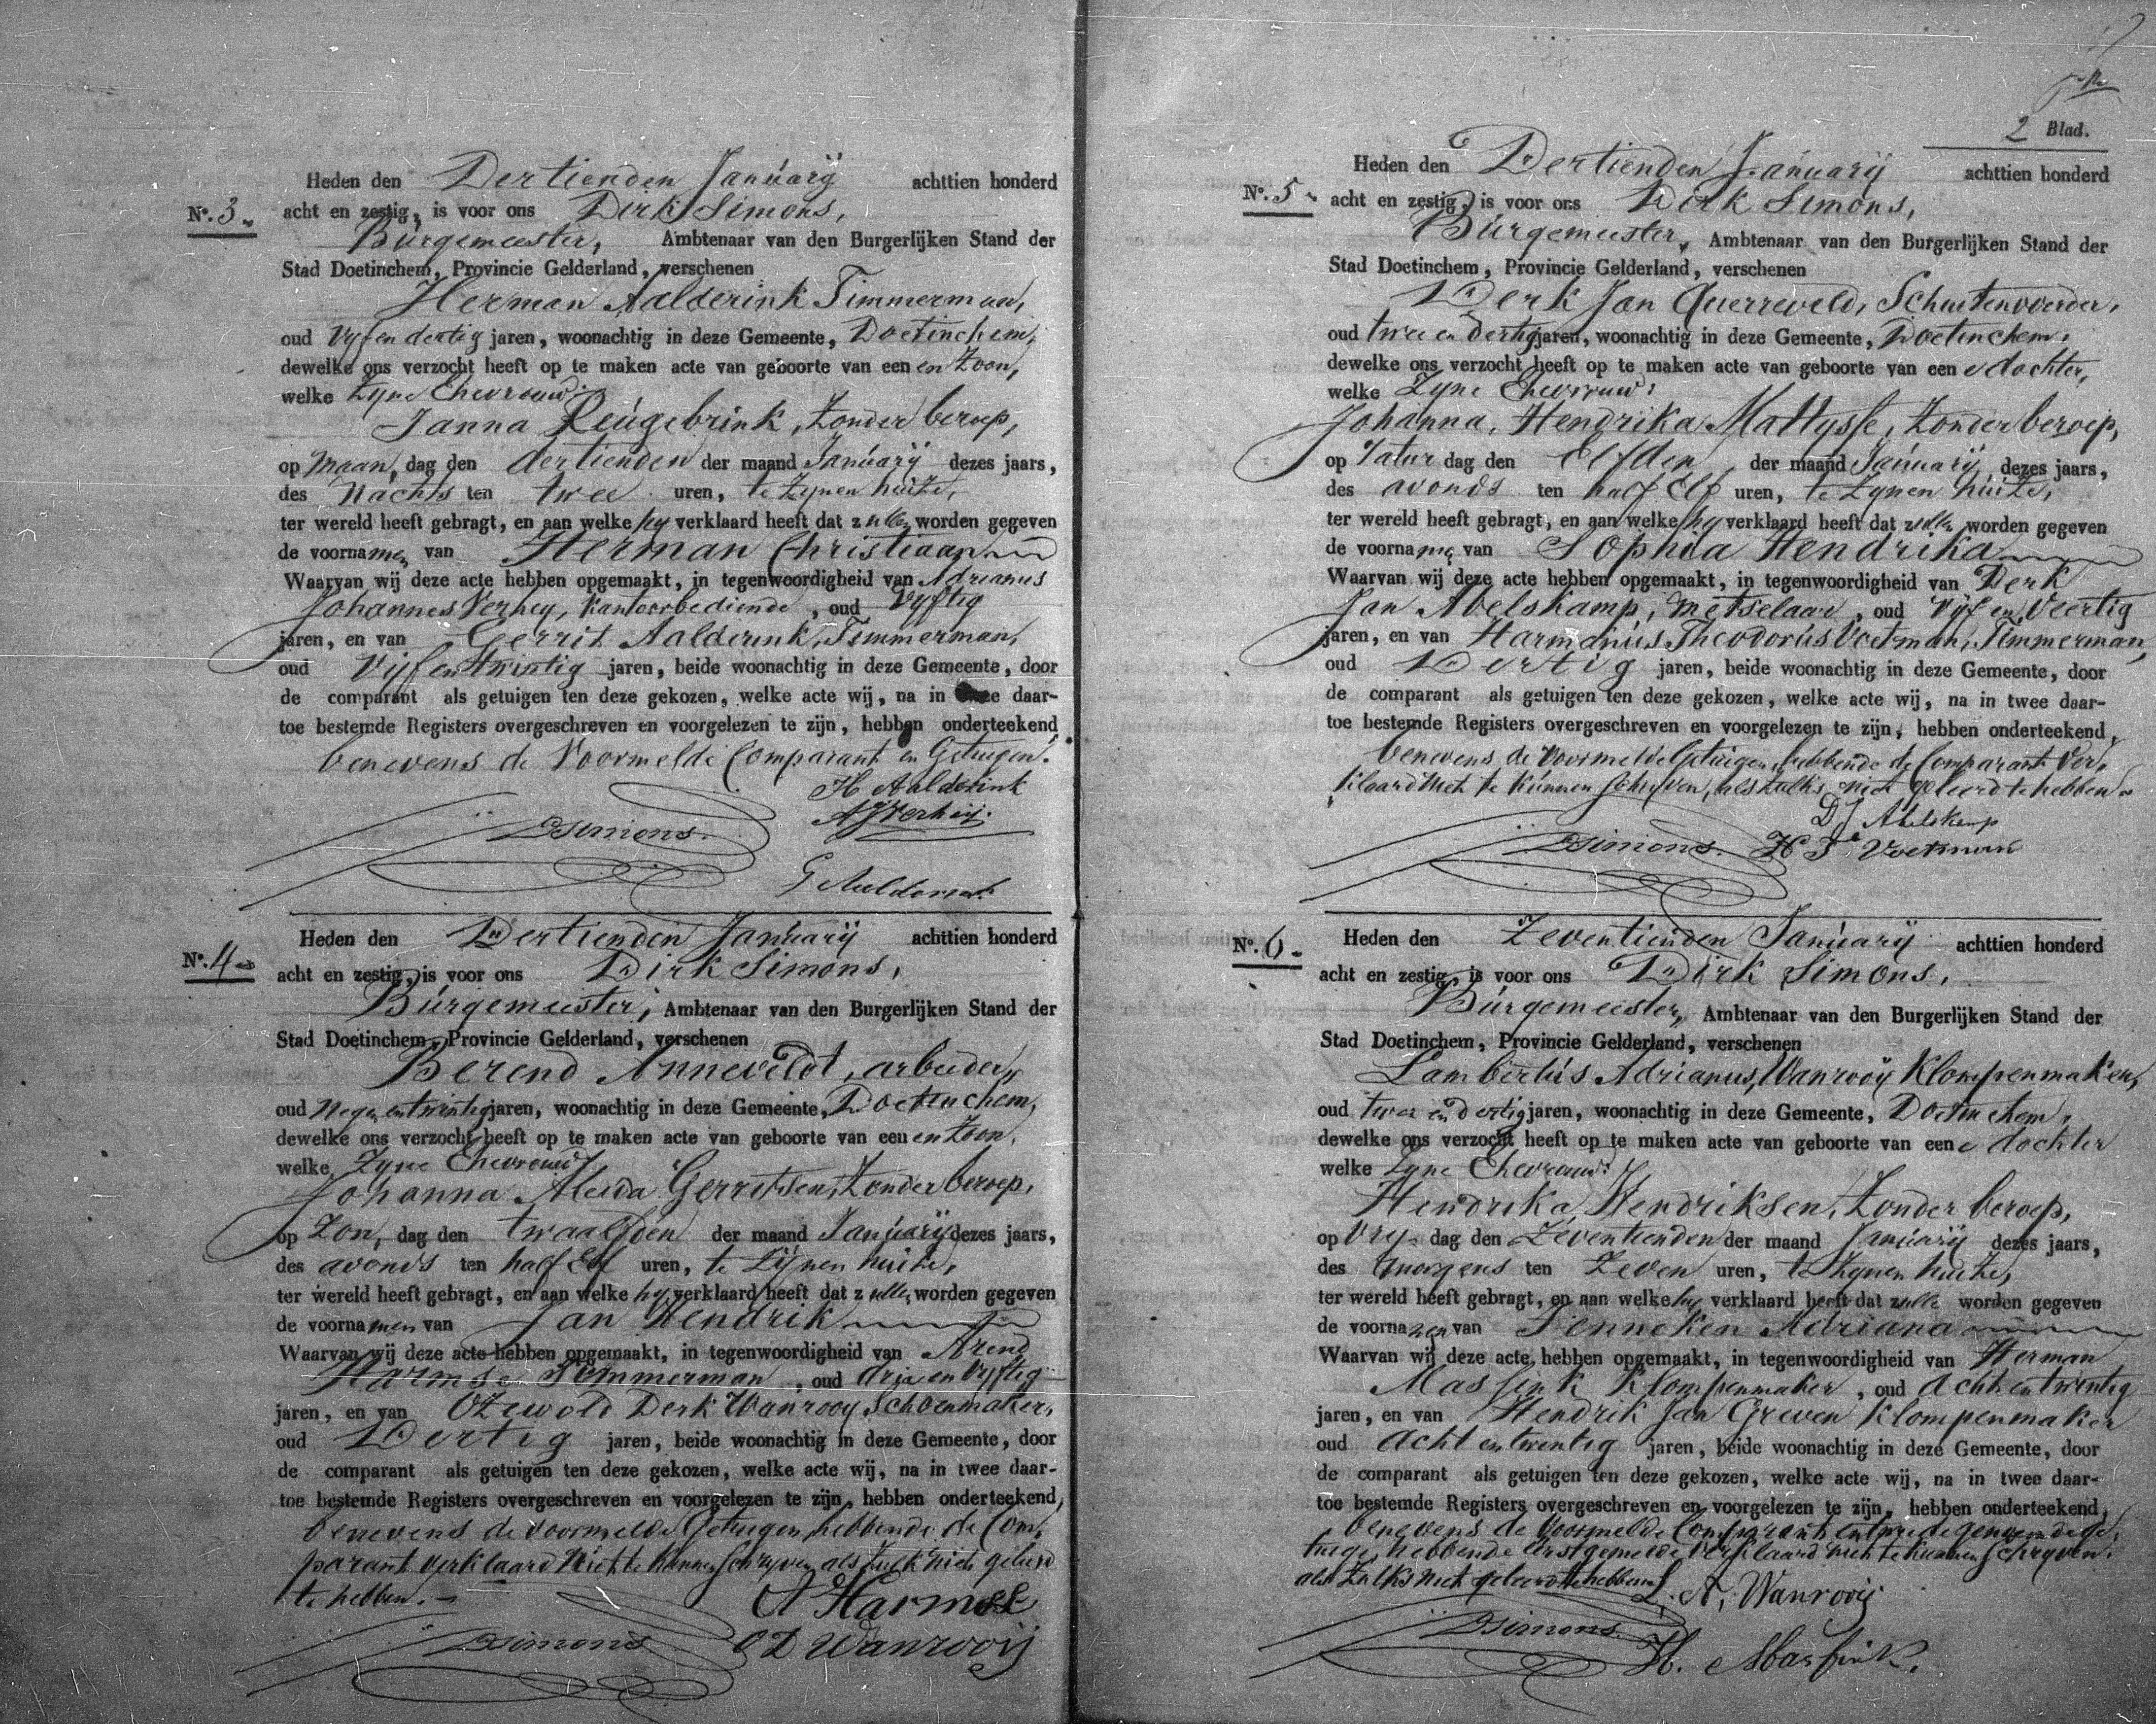 Heden den Dertienden Januarij achttien honderd
No. 3. acht en zestig, is voor ons Dirk Simons,
Burgemeester, Ambtenaar van den Burgerlijken Stand der
Stad Doetinchem, Provincie Gelderland, verschenen
Herman Aalderink Timmerman,
oud Vyf en dertig jaren, woonachtig in deze Gemeente, Doetinchem,
dewelke ons verzocht heeft op te maken acte van geboorte van een en Zoon,
welke Zyne Ehevrouw:
Janna Reugebrink, Zonder beroep,
op Maan, dag den dertienden der maand Januarij dezes jaars,
des Nachts ten twee uren, te Zynen huize,
ter wereld heeft gebragt, en aan welke hy verklaard heeft dat zullen worden gegeven
de voornamen van Herman Christiaan
Waarvan wij deze acte hebben opgemaakt, in tegenwoordigheid van Adrianus
Johannes Verhey, Kantoorbediende, oud Vyftig
jaren, en van Gerrit Aalderink, Timmerman,
oud Vijf en Twintig jaren, beide woonachtig in deze Gemeente, door
de comparant als getuigen ten deze gekozen, welke acte wij, na in daar-
toe bestemde Registers overgeschreven en voorgelezen te zijn, hebben onderteekend
benevens de Voormelde Comparant en Getuigen.
H Aalderink
AJVerheij.
DSimons.
G Aalderink
Heden den Dertienden Januarij achttien honderd
No. 4 acht en zestig, is voor ons Dirk Simons,
Burgemeester, Ambtenaar van den Burgerlijken Stand der
Stad Doetinchem, Provincie Gelderland, verschenen
Berend Anneveldt, arbeider,
oud Negen en twintig jaren, woonachtig in deze Gemeente, Doetinchem,
dewelke ons verzocht heeft op te maken acte van geboorte van een en Zoon,
welke Zyne Ehevrouw
Johanna Aleida Gerretsen, Zonder beroep,
op Zon, dag den twaalfden der maand Januarij dezes jaars,
des avonds ten half Elf uren, te Zijnen huize,
ter wereld heeft gebragt, en aan welke hy verklaard heeft dat zullen worden gegeven
de voornamen van Jan Hendrik
Waarvan wij deze acte hebben opgemaakt, in tegenwoordigheid van Arend
Harmse Timmerman, oud drie en Vyftig
jaren, en van Ozewold Derk Wanrooy Schoenmaker,
oud Dertig jaren, beide woonachtig in deze Gemeente, door
de comparant als getuigen ten deze gekozen, welke acte wij, na in twee daar-
toe bestemde Registers overgeschreven en voorgelezen te zijn, hebben onderteekend,
benevens de Voormelde Getuigen, hebbende de Com,
parant verklaard Niet te kunnen Schryven als Zulk niet geleerd
te hebben.
A Harmse
DSimons OD Wanrooij
2 Blad.
Heden den Dertienden Januarij achttien honderd
No. 5 acht en zestig, is voor ons Dirk Simons,
Burgemeester, Ambtenaar van den Burgerlijken Stand der
Stad Doetinchem, Provincie Gelderland, verschenen
Derk Jan Querreveld, Schuitenvoerder,
oud twee en dertig jaren, woonachtig in deze Gemeente, Doetinchem,
dewelke ons verzocht heeft op te maken acte van geboorte van een e dochter,
welke Zyne Ehevrouw:
Johanna, Hendrika Mattysse, Zonder beroep,
op Satur dag den Elfden der maand Januarij dezes jaars,
des avonds ten half Elf uren, te Zynen huize,
ter wereld heeft gebragt, en aan welke hy verklaard heeft dat zullen worden gegeven
de voorname van Sophia Hendrika
Waarvan wij deze acte hebben opgemaakt, in tegenwoordigheid van Derk
Jan Abelskamp, Metselaar, oud Vijf en Veertig
jaren, en van Harmanus Theodorus Voetman, Timmerman,
oud Dertig jaren, beide woonachtig in deze Gemeente, door
de comparant als getuigen ten deze gekozen, welke acte wij, na in twee daar-
toe bestemde Registers overgeschreven en voorgelezen te zijn, hebben onderteekend,
benevens de Voormelde Getuigen, hebbende de Comparant Ver,
klaard Niet te kunnen schryven, als Zulks niet geleerd te hebben.
DJ Abelskamp
DSimons. H T Voetman
Heden den Zeventienden Januarij achttien honderd
No. 6. acht en zestig, is voor ons Dirk Simons,
Burgemeester, Ambtenaar van den Burgerlijken Stand der
Stad Doetinchem, Provincie Gelderland, verschenen
Lambertus Adrianus, Wanrooij Klompenmaker,
oud twee en dertig jaren, woonachtig in deze Gemeente, Doetinchem,
dewelke ons verzocht heeft op te maken acte van geboorte van een e dochter
welke Zyne Ehevrouw:
Hendrika Hendriksen, Zonder beroep,
op Vry dag den Zeventienden der maand Januarij dezes jaars,
des morgens ten Zeven uren, te Zynen huize,
ter wereld heeft gebragt, en aan welke hy verklaard heeft dat zulle worden gegeven
de voornamen van Senneken Adriana
Waarvan wij deze acte hebben opgemaakt, in tegenwoordigheid van Herman
Massink Klompenmaker, oud Acht en twentig
jaren, en van Hendrik Jan Greven Klompenmaker
oud Acht en twentig jaren, beide woonachtig in deze Gemeente, door
de comparant als getuigen ten deze gekozen, welke acte wij, na in twee daar-
toe bestemde Registers overgeschreven en voorgelezen te zijn, hebben onderteekend,
benevens de Voormelde Comparant en
tuige, hebbende Verklaard niet te kunnen Schryven.
als Zulks niet geleerd te hebben.
L. A. Wanrooij
DSimons.
H. Massink.